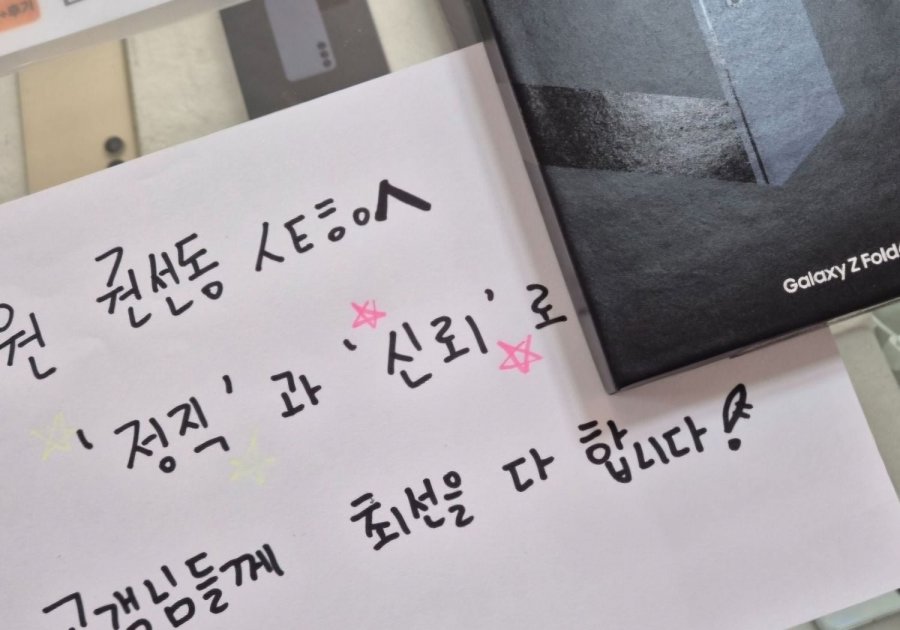 +후기
원 권선동 스토홍ㅇㅅ
'정직' 과 '신뢰' 로
고객님들께 최선을 다 합니다!
Galaxy Z Fold